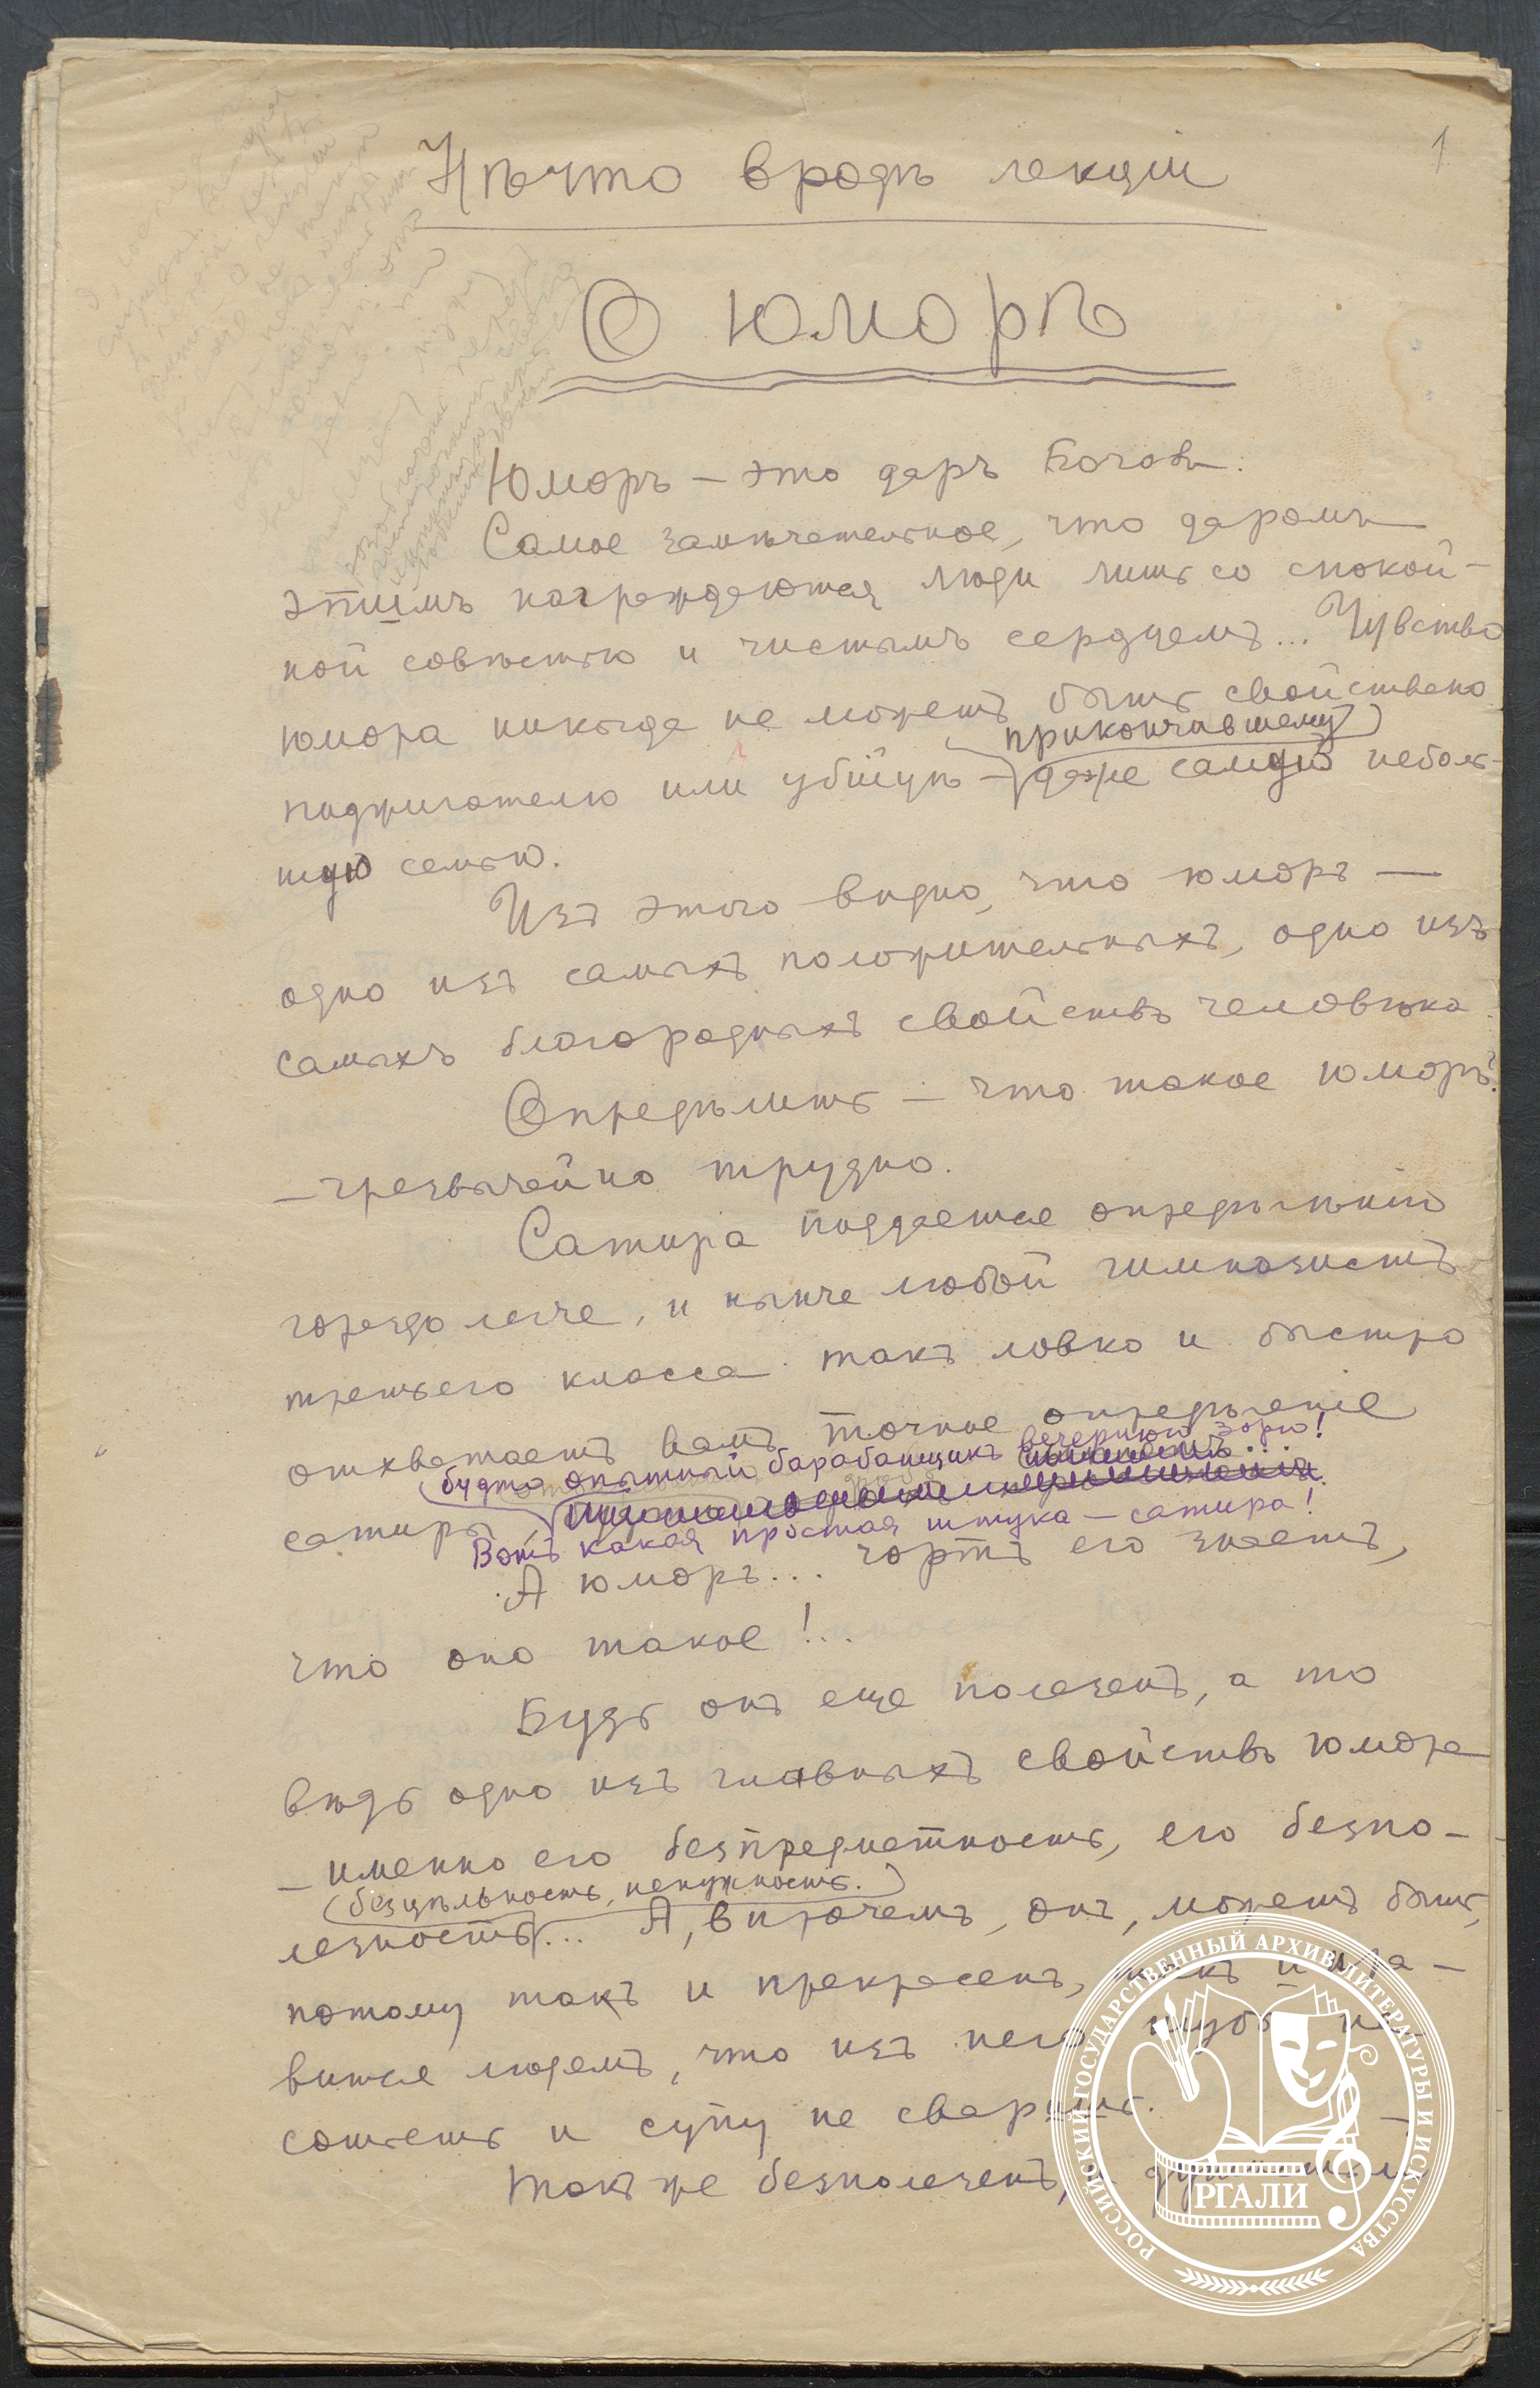 1
Нѣчто вродѣ лекціи
О юморѣ
Юморъ — это даръ Боговъ.
Самое замѣчательное, что даромъ
этимъ награждаются люди лишь со спокой-
ной совѣстью и чистымъ сердцемъ... Чувство
юмора никогда не можетъ быть свойствено
прикончившему
поджигателю или убійцѣ — даже самую неболь-
шую семью.
Изъ этого видно, что юморъ —
одно изъ самыхъ положительныхъ, одно изъ
самыхъ благородныхъ свойствъ человѣка.
Опредѣлить — что такое юморъ?
— чрезвычайно трудно.
Сатира поддается опредѣленію
гораздо легче, и нынче любой гимназистъ
третьего класса такъ ловко и быстро
отхватаетъ вамъ точное опредѣленіе
будто опытный барабанщикъ вечернюю зорю!
сатиры,
Вотъ какая простая штука — сатира!
А юморъ... чортъ его знаетъ,
что оно такое!..
Будь онъ еще полезенъ, а то
вѣдь одно изъ главныхъ свойствъ юмора
— именно его безпредметность, его безпо-
безцѣльность, ненужность.
лезность... А, впрочемъ, онъ, можетъ быть,
потому такъ и прекрасенъ, такъ и нра-
вится людямъ, что изъ него шубы не
сошьешь и супу не сваришь.
Такъ же безполезенъ,
РОССИЙСКИЙ ГОСУДАРСТВЕННЫЙ АРХИВ ЛИТЕРАТУРЫ И ИСКУССТВА
РГАЛИ